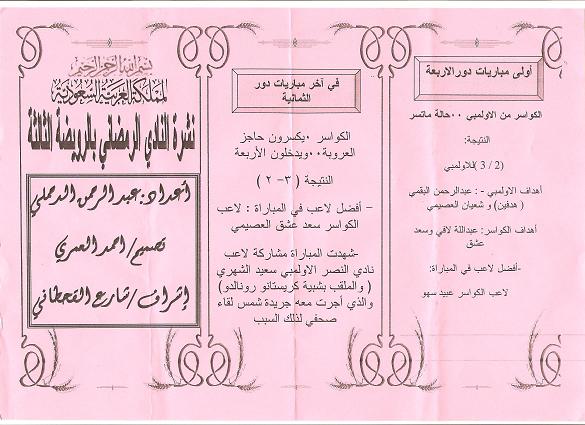 بسم الله الرحمن الرحيم
المملكة العربية السعودية
نشرة النادي الرمضاني بالرويضة الثالثة
أعداد: عبدالرحمن الدحملي
تصميم/ احمد العمري
إشراف/ شارع القحطاني
في آخر مباريات دور
الثمانية
الكواسر ,يكسرون حاجز
العروبة,,ويدخلون الأربعة
النتيجة ( ٣- ٢ )
– أفضل لاعب في المباراة : لاعب
الكواسر سعد عشق العصيمي
-شهدت المباراة مشاركة لاعب
نادي النصر الاولمبي سعيد الشهري
( والملقب بشبية كريستانو رونالدو)
والذي أجرت معه جريدة شمس لقاء
صحفي لذلك السبب
أولى مباريات دور الاربعة
الكواسر من الاولمبي ,,حالة ماتسر
النتيجة:
(2 / 3 )للاولمبي
أهداف الاولمبي -: عبدالرحمن البقمي
( هدفين) و شعيان العصيمي
أهداف الكواسر: عبداللة لافي وسعد
عشق
-أفضل لاعب في المباراة:
لاعب الكواسر عبيد سهو